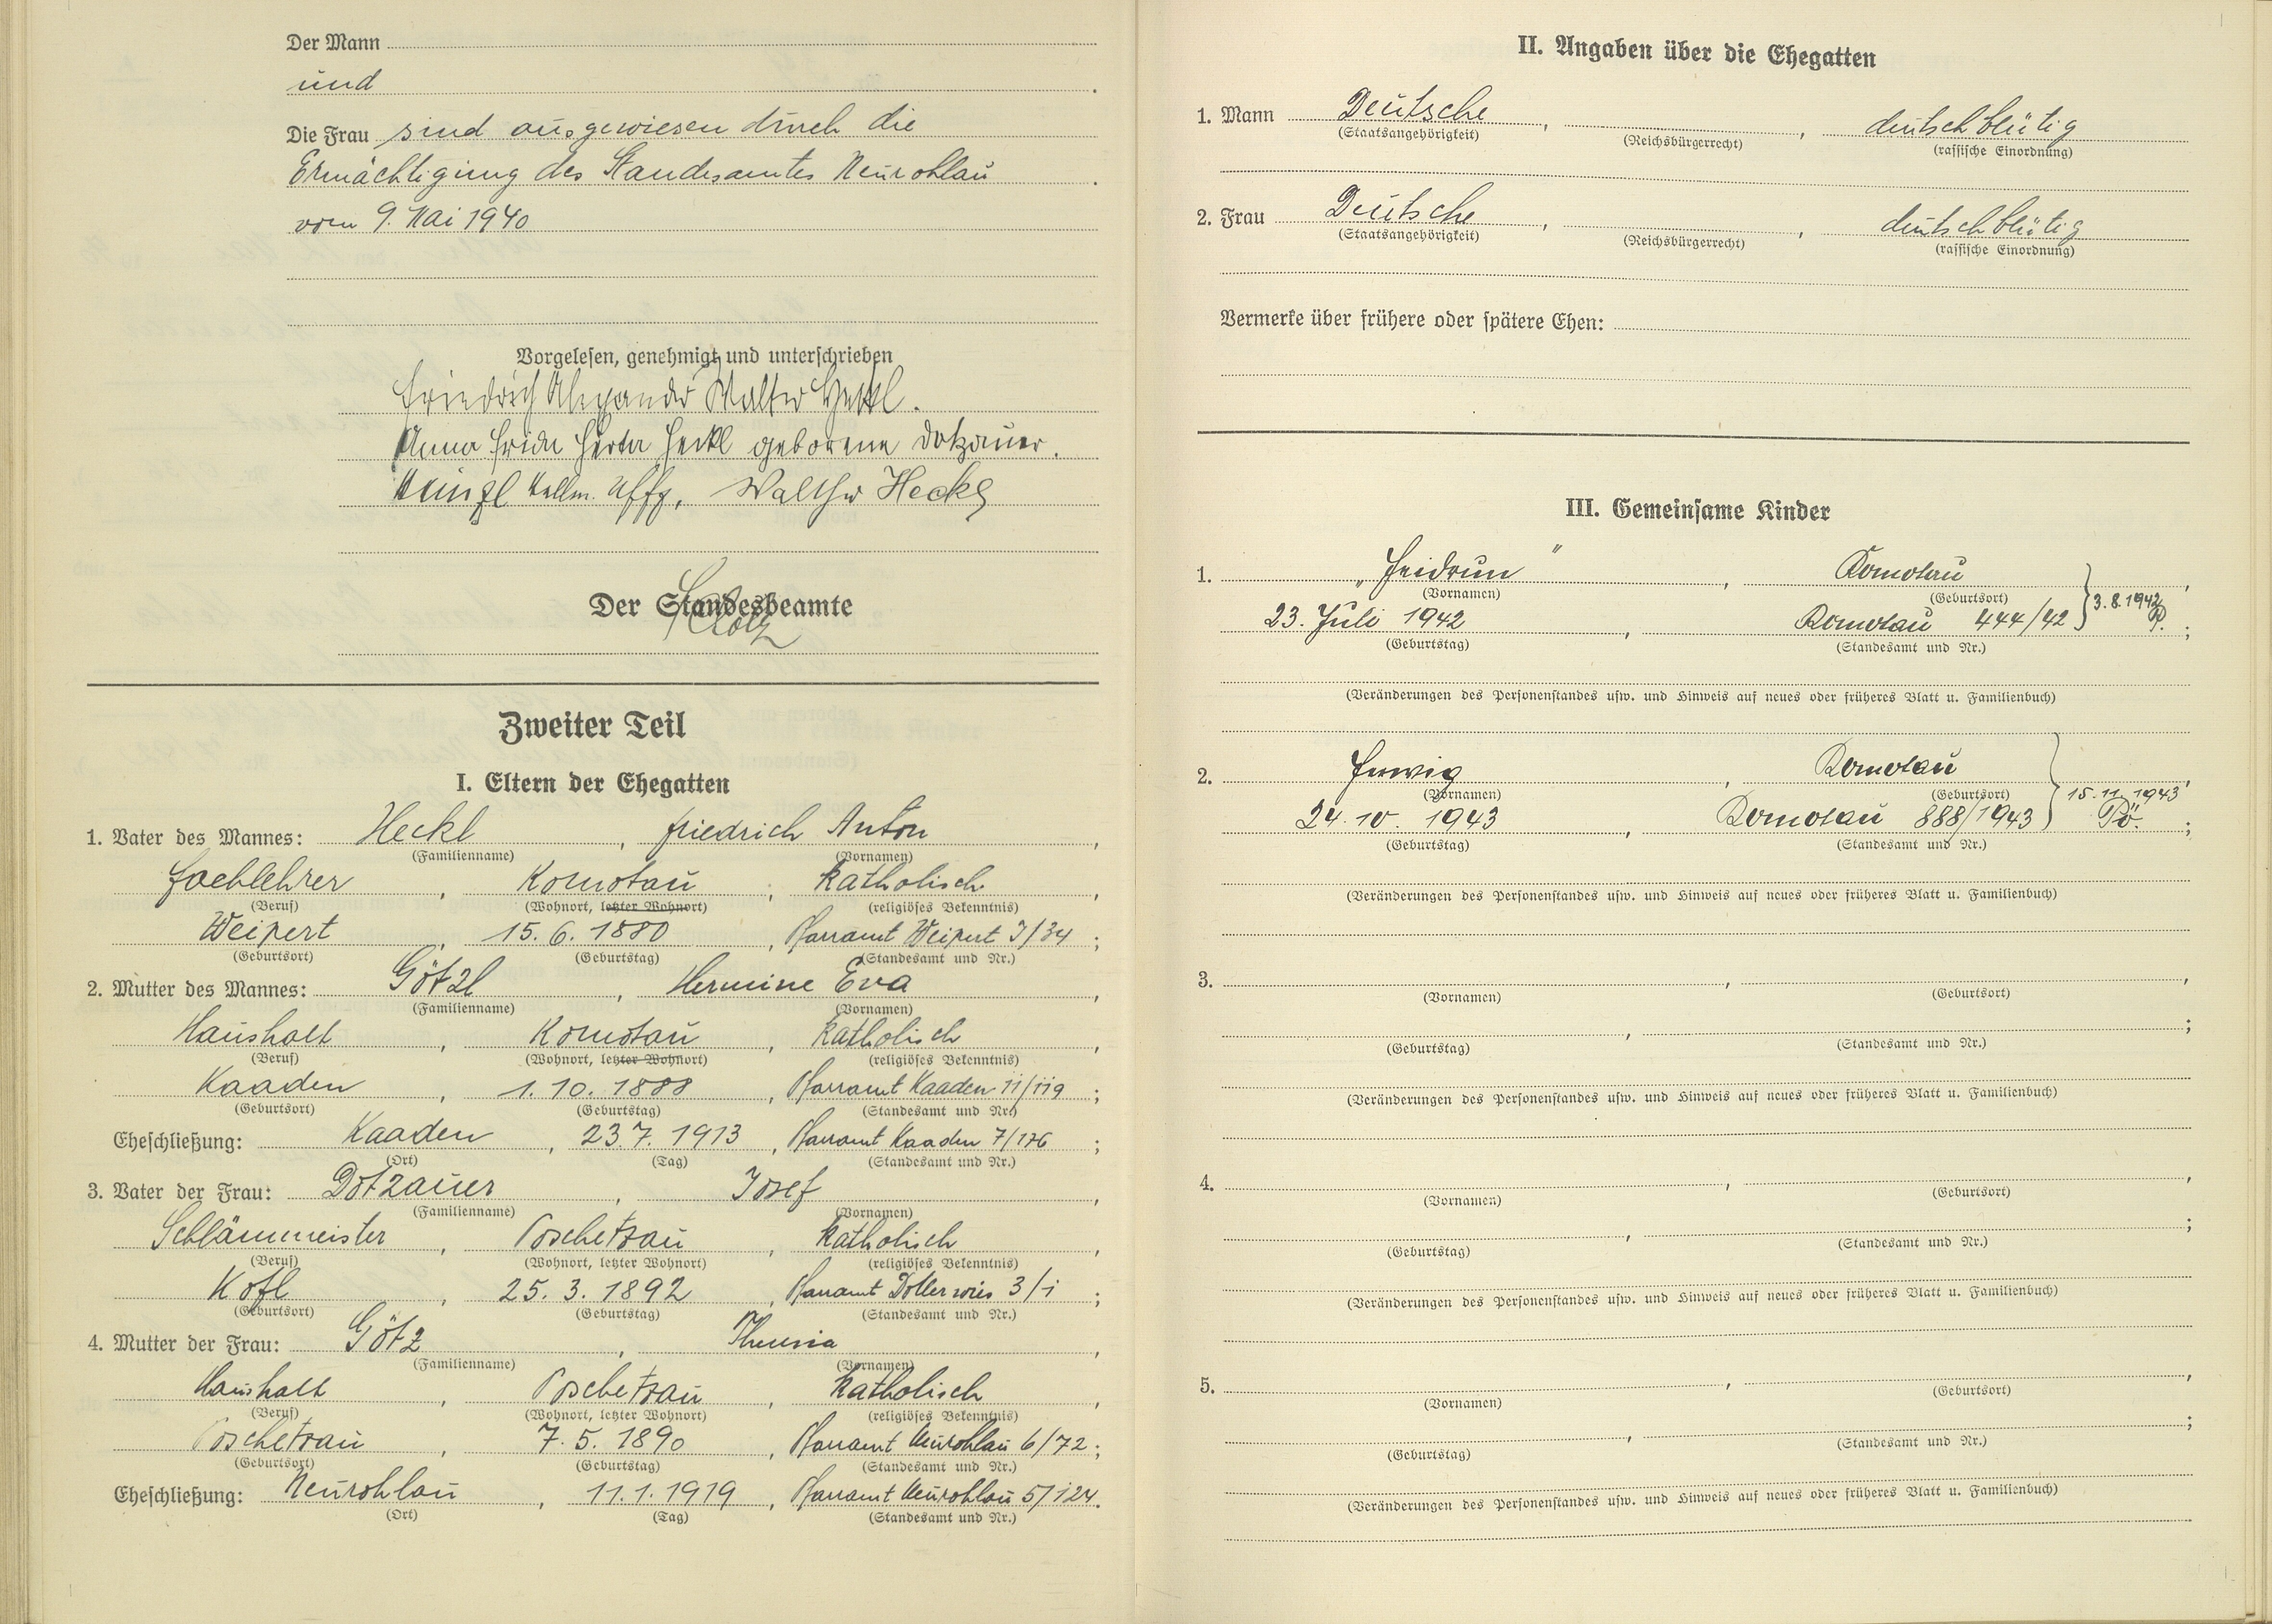 Der Mann
und
Die Frau sind ausgewiesen durch die
Ermächtigung des Standesamtes Neurohlau
vom 9. Mai 1940
Vorgelesen, genehmigt und unterschrieben
Friedrich Alexander Walter Heckl.
Anna Frida Herta Heckl geborene Dotzauer.
Walther Heckl
Der Standesbeamte
Zweiter Teil
I. Eltern der Ehegatten
1. Vater des Mannes: Heckl, Friedrich Anton,
(Familienname) (Vornamen)
Fachlehrer, Komotau, katholisch,
(Beruf) (Wohnort, letzter Wohnort) (religiöses Bekenntnis)
Weipert, 15. 6. 1880, Pfarramt Weipert J/34;
(Geburtsort) (Geburtstag) (Standesamt und Nr.)
2. Mutter des Mannes: Götzl, Hermine Eva,
(Familienname) (Vornamen)
Haushalt, Komotau, katholisch,
(Beruf) (Wohnort, letzter Wohnort) (religiöses Bekenntnis)
Kaaden, 1. 10. 1888, Pfarramt Kaaden 11/119;
(Geburtsort) (Geburtstag) (Standesamt und Nr.)
Eheschließung: Kaaden, 23. 7. 1913, Pfarramt Kaaden 7/176;
(Ort) (Tag) (Standesamt und Nr.)
3. Vater der Frau: Dotzauer, Josef,
(Familienname) (Vornamen)
Schlämmeister, Poschetzau, katholisch,
(Beruf) (Wohnort, letzter Wohnort) (religiöses Bekenntnis)
Kofl, 25. 3. 1892, Pfarramt Dotterwies 3/1;
(Geburtsort) (Geburtstag) (Standesamt und Nr.)
4. Mutter der Frau: Götz, Theresia,
(Familienname) (Vornamen)
Haushalt, Poschetzau, katholisch,
(Beruf) (Wohnort, letzter Wohnort) (religiöses Bekenntnis)
Poschetzau, 7. 5. 1890, Pfarramt Neurohlau 6/72;
(Geburtsort) (Geburtstag) (Standesamt und Nr.)
Eheschließung: Neurohlau, 11. 1. 1919, Pfarramt Neurohlau 5/124.
(Ort) (Tag) (Standesamt und Nr.)
II. Angaben über die Ehegatten
1. Mann Deutsche, , deutschblütig
(Staatsangehörigkeit) (Reichsbürgerrecht) (rassische Einordnung)
2. Frau Deutsche, , deutschblütig
(Staatsangehörigkeit) (Reichsbürgerrecht) (rassische Einordnung)
Vermerke über frühere oder spätere Ehen:
III. Gemeinsame Kinder
1. „Heidrun", Komotau,
(Vornamen) (Geburtsort)
23. Juli 1942, Komotau 444/42 } 3. 8. 1942 P.;
(Geburtstag) (Standesamt und Nr.)
(Veränderungen des Personenstandes usw. und Hinweis auf neues oder früheres Blatt u. Familienbuch)
2. Herwig, Komotau,
(Vornamen) (Geburtsort)
24. 10. 1943, Komotau 888/1943 } 15. 11. 1943 Pö.;
(Geburtstag) (Standesamt und Nr.)
(Veränderungen des Personenstandes usw. und Hinweis auf neues oder früheres Blatt u. Familienbuch)
3. , ,
(Vornamen) (Geburtsort)
, ;
(Geburtstag) (Standesamt und Nr.)
(Veränderungen des Personenstandes usw. und Hinweis auf neues oder früheres Blatt u. Familienbuch)
4. , ,
(Vornamen) (Geburtsort)
, ;
(Geburtstag) (Standesamt und Nr.)
(Veränderungen des Personenstandes usw. und Hinweis auf neues oder früheres Blatt u. Familienbuch)
5. , ,
(Vornamen) (Geburtsort)
, ;
(Geburtstag) (Standesamt und Nr.)
(Veränderungen des Personenstandes usw. und Hinweis auf neues oder früheres Blatt u. Familienbuch)